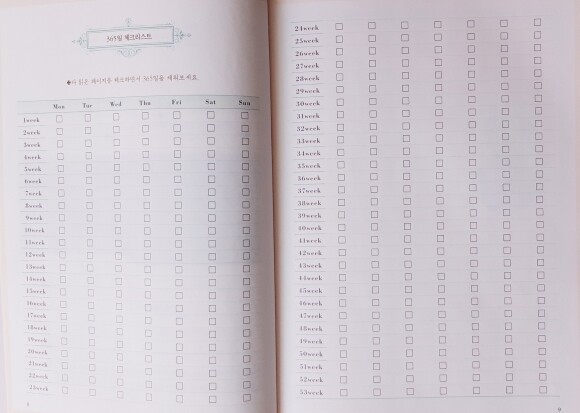 365일 체크리스트
◆다 읽은 페이지를 체크하면서 365일을 채워보세요.
Mon Tue Wed Thu Fri Sat Sun
1week
2week
3week
4week
5week
6week
7week
8week
9week
10week
11week
12week
13week
14week
15week
16week
17week
18week
19week
20week
21week
22week
23week
8
24week
25week
26week
27week
28week
29week
30week
31week
32week
33week
34week
35week
36week
37week
38week
39week
40week
41week
42week
43week
44week
45week
46week
47week
48week
49week
50week
51week
52week
53week
9